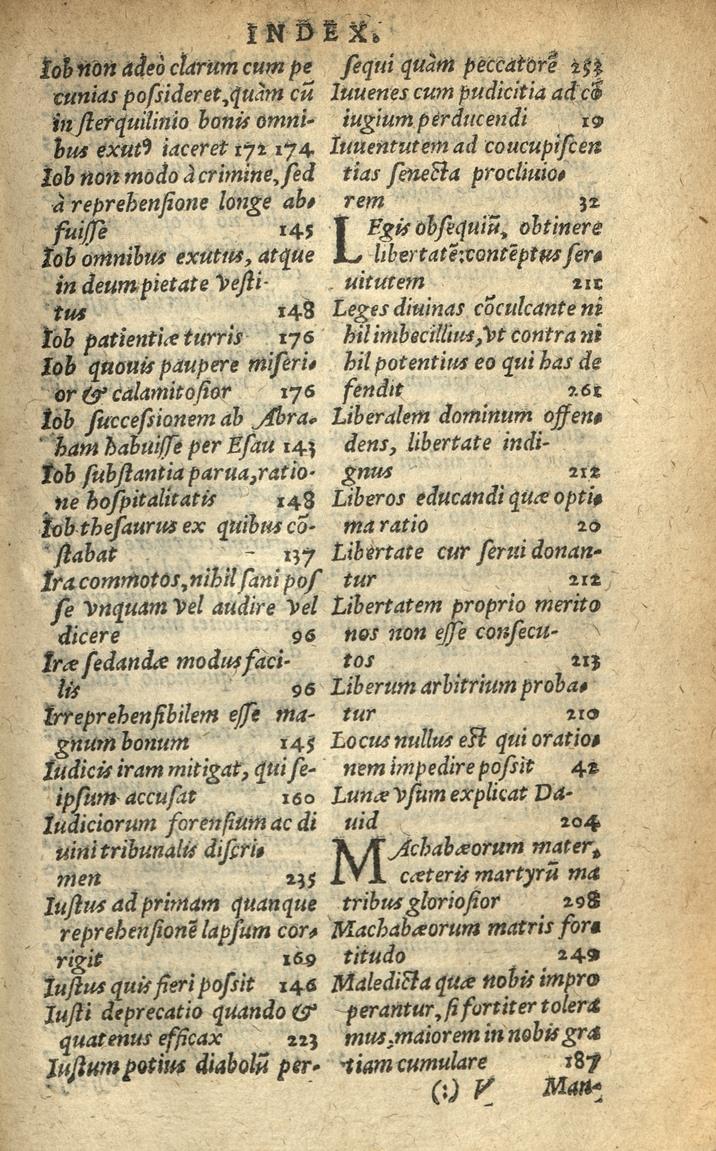 INDEX.
Iob non adeò clarum cum pe
cunias poſsideret, quàm cū
in ſterquilinio bonis omni-
bus exutꝰ iaceret 172 174
Iob non modo à crimine, ſed
à reprehenſione longe ab-
fuiſſe 145
Iob omnibus exutus, atque
in deum pietate veſti-
tus 148
Iob patientiæ turris 176
Iob quouis paupere miſeri-
or & calamitoſior 176
Iob ſucceſsionem ab Abra-
ham habuiſſe per Eſau 143
Iob ſubſtantia parua, ratio-
ne hoſpitalitatis 148
Iob theſaurus ex quibus cō-
ſtabat 137
Ira commotos, nihil ſani poſ
ſe vnquam vel audire vel
dicere 96
Iræ ſedandæ modus faci-
lis 96
Irreprehenſibilem eſſe ma-
gnum bonum 145
Iudicis iram mitigat, qui ſe-
ipſum accuſat 160
Iudiciorum forenſium ac di
uini tribunalis diſcri-
men 235
Iuſtus ad primam quanque
reprehenſionē lapſum cor-
rigit 169
Iuſtus quis fieri poſsit 146
Iuſti deprecatio quando &
quatenus efficax 223
Iuſtum potius diabolū per-
ſequi quàm peccatorē 253
Iuuenes cum pudicitia ad cō
iugium perducendi 19
Iuuentutem ad coucupiſcen
tias ſenecta procliuio-
rem 32
LEgis obſequiū, obtinere
libertatē: contēptus ſer-
uitutem 211
Leges diuinas cōculcante ni
hil imbecillius, vt contra ni
hil potentius eo qui has de
fendit 261
Liberalem dominum offen-
dens, libertate indi-
gnus 212
Liberos educandi quæ opti-
ma ratio 20
Libertate cur ſerui donan-
tur 212
Libertatem proprio merito
nos non eſſe conſecu-
tos 213
Liberum arbitrium proba-
tur 210
Locus nullus eſt qui oratio-
nem impedire poſsit 42
Lunæ vſum explicat Da-
uid 204
MAchabæorum mater,
cæteris martyrū ma
tribus glorioſior 298
Machabæorum matris for-
titudo 249
Maledicta quæ nobis impro
perantur, ſi fortiter tolera
mus, maiorem in nobis gra
tiam cumulare 187
(:) V Man-